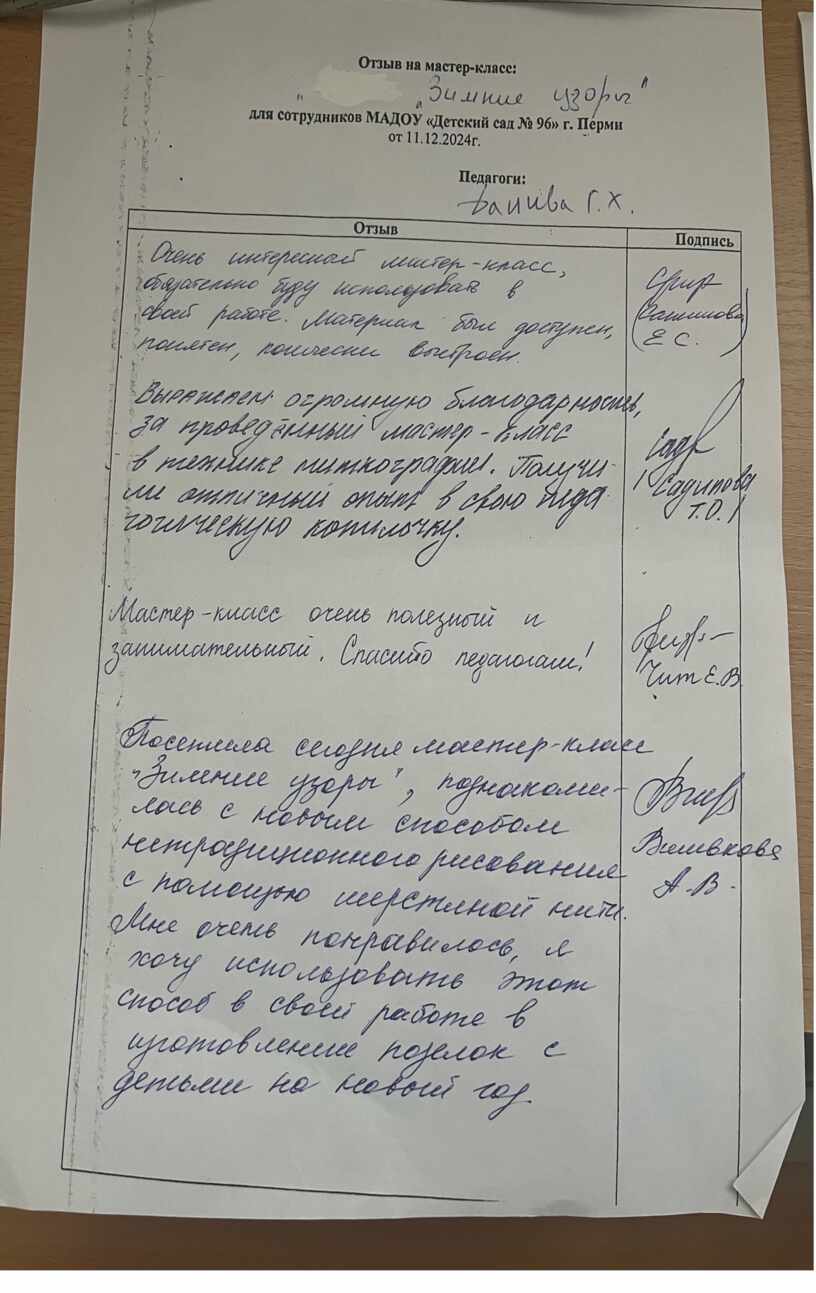 Отзыв на мастер-класс:
" „Зимние узоры"
для сотрудников МАДОУ «Детский сад № 96» г. Перми
от 11.12.2024г.
Педагоги:
Г.Х.
Отзыв Подпись
Очень интересный мастер-класс,
обязательно буду использовать в
своей работе. Материал был доступен,
понятен, логически выстроен.
Е С.
Выражаем огромную благодарность,
за проведённый мастер-класс
в технике ниткографии. Получи-
ли отличный опыт в свою педа
гогическую копилочку.
/ Садыпова
Т.О. /
Мастер-класс очень полезный и
занимательный. Спасибо педагогам!
Чит Е.В.
Посетила сегодня мастер-класс
"Зимние узоры", познакоми-
лась с новым способом
нетрадиционного рисования
с помощью шерстяной нити.
Мне очень понравилось, я
хочу использовать этот
способ в своей работе в
изготовлении поделок с
детьми на новый год.
А.В.